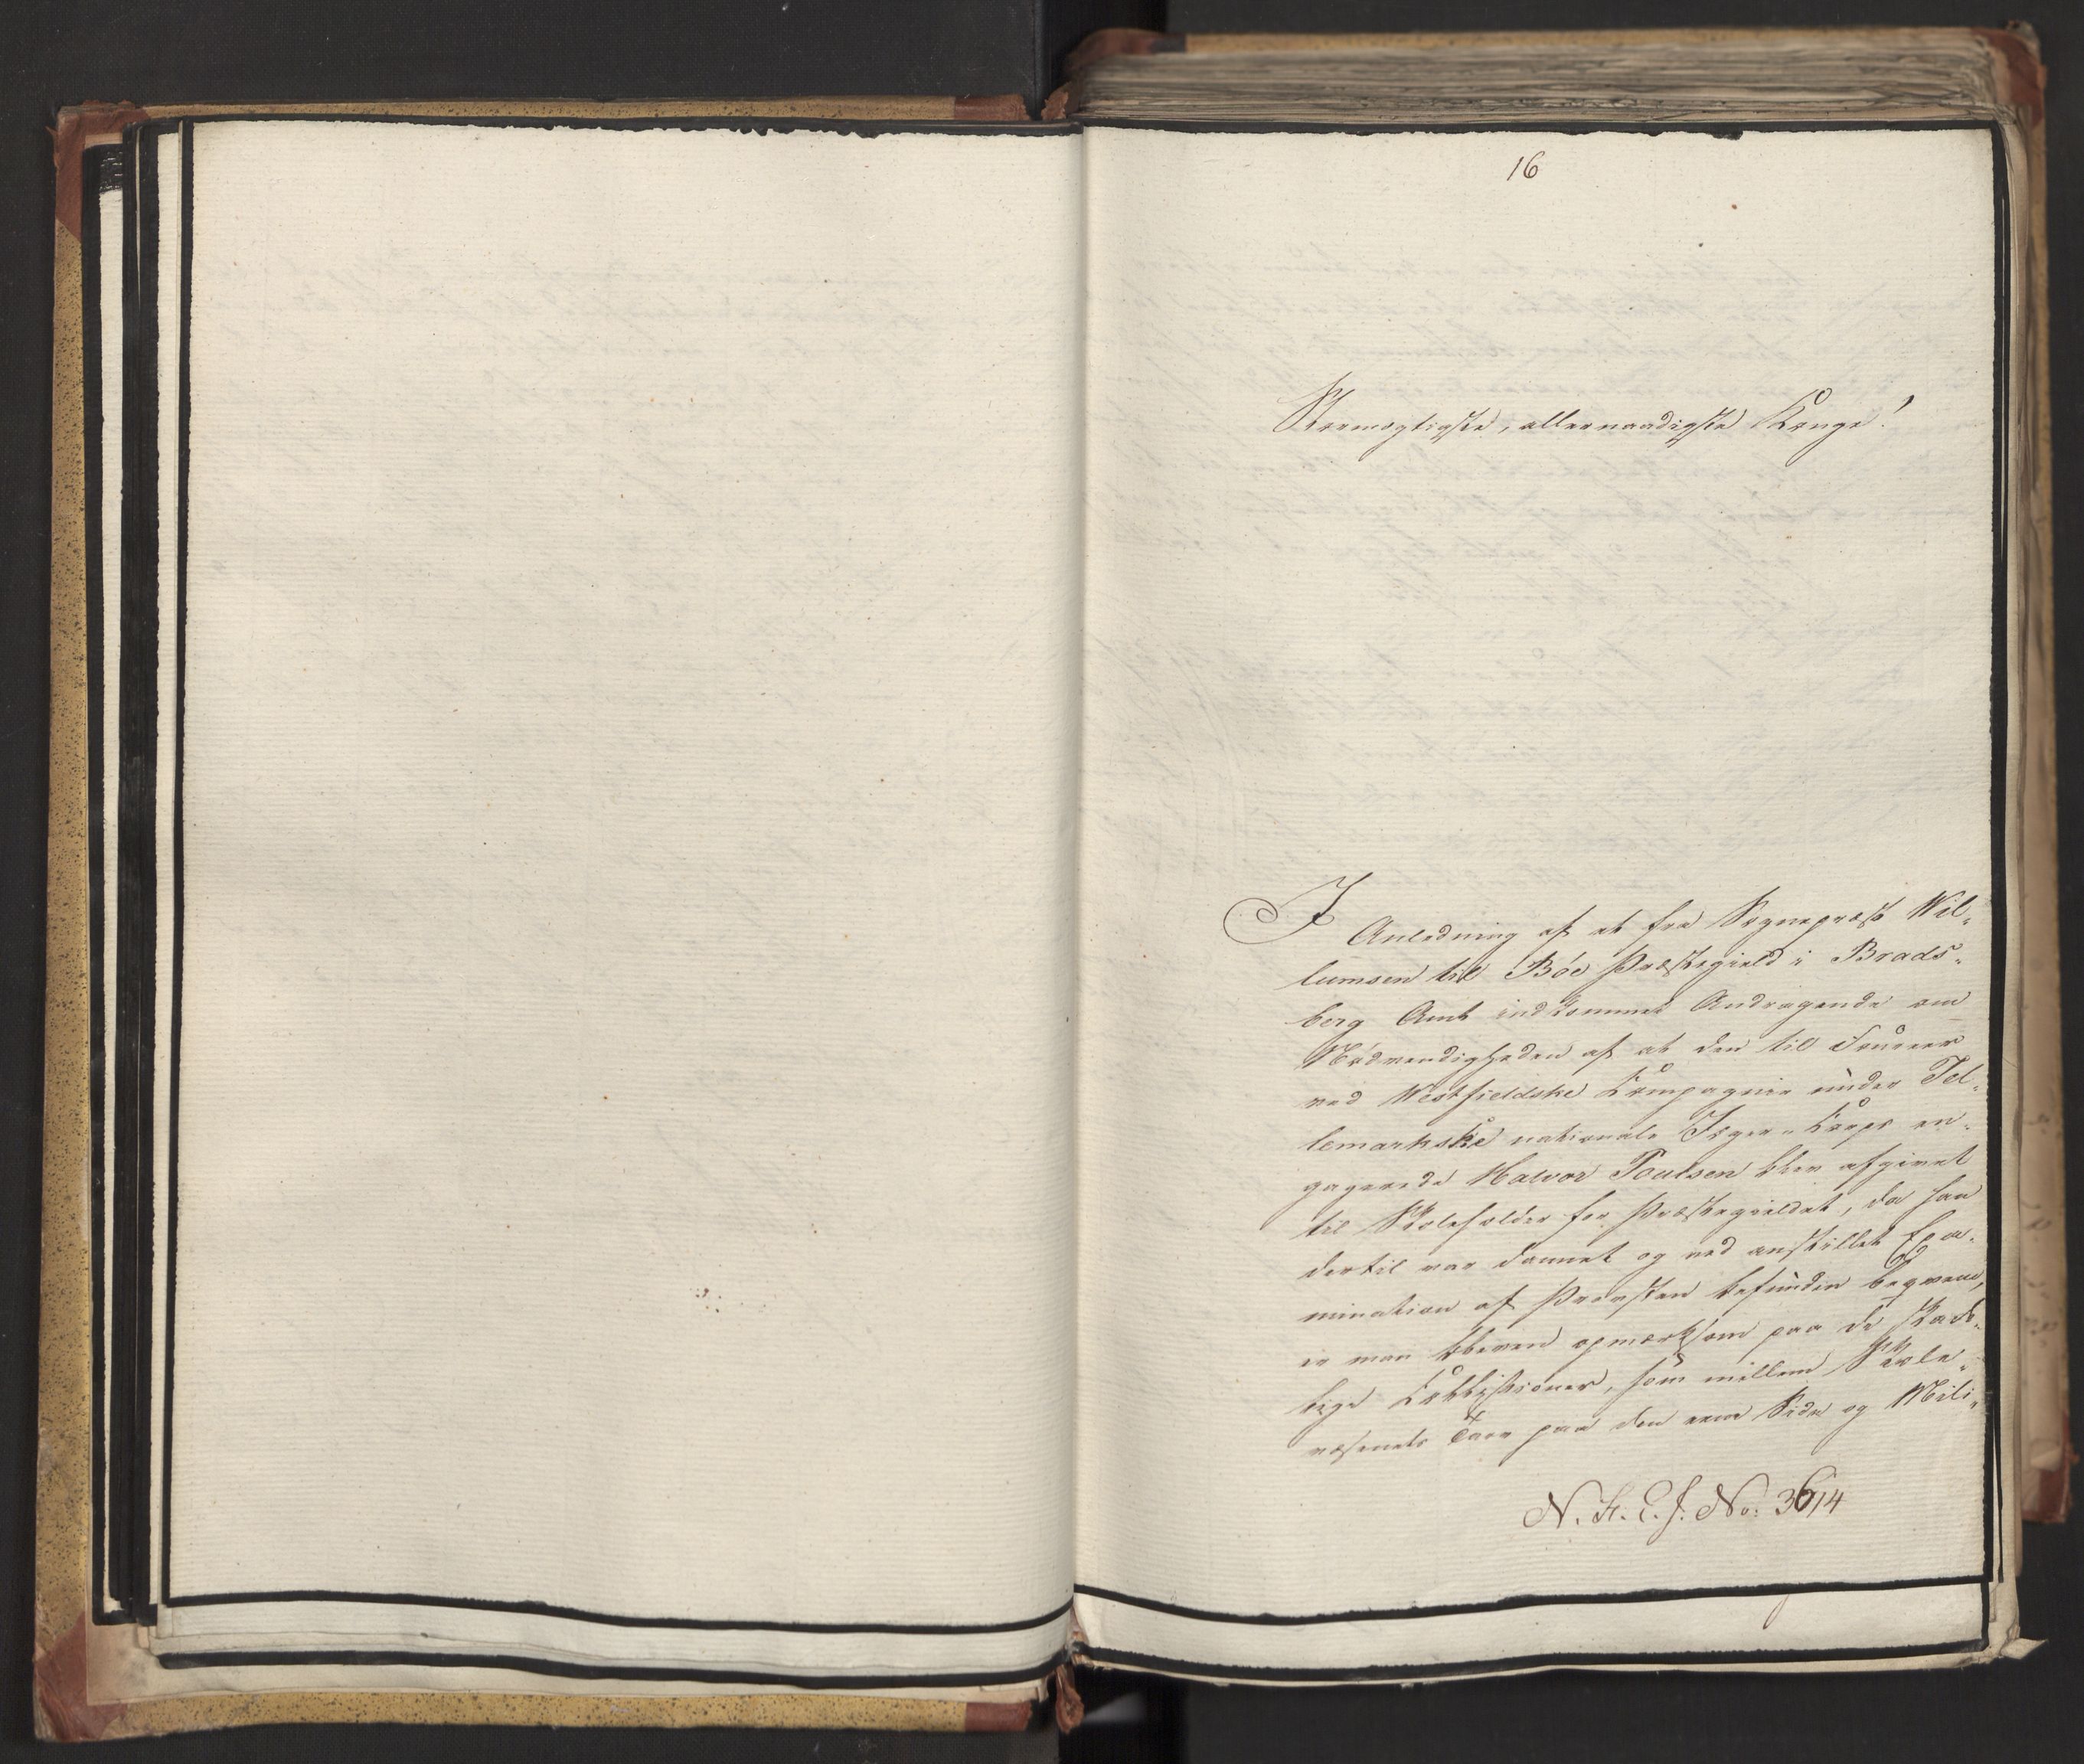 16
Stormægtigste, allernaadigste Konge!
I Anledning af et fra Sognepræst Wil-
lumsen til Böe Præstegield i Brads-
berg Amt indkommet Andragende om
Nödvendigheden af at den til Foureer
ved Westfieldske Compagnie under Tel-
lemarkske nationale Jæger-Corps en-
gagerede Halvor Poulsen blev afgivet
til Skoleholder for Præstegieldet, da han
dertil var dannet og ved anstillet Exa-
mination af Provsten befunden beqvem,
er man bleven opmærksom paa de skade-
lige Collissioner, som mellem Skole-
væsenets Tarv paa den eene Side og Mili-
N. H. E. J. No: 3614